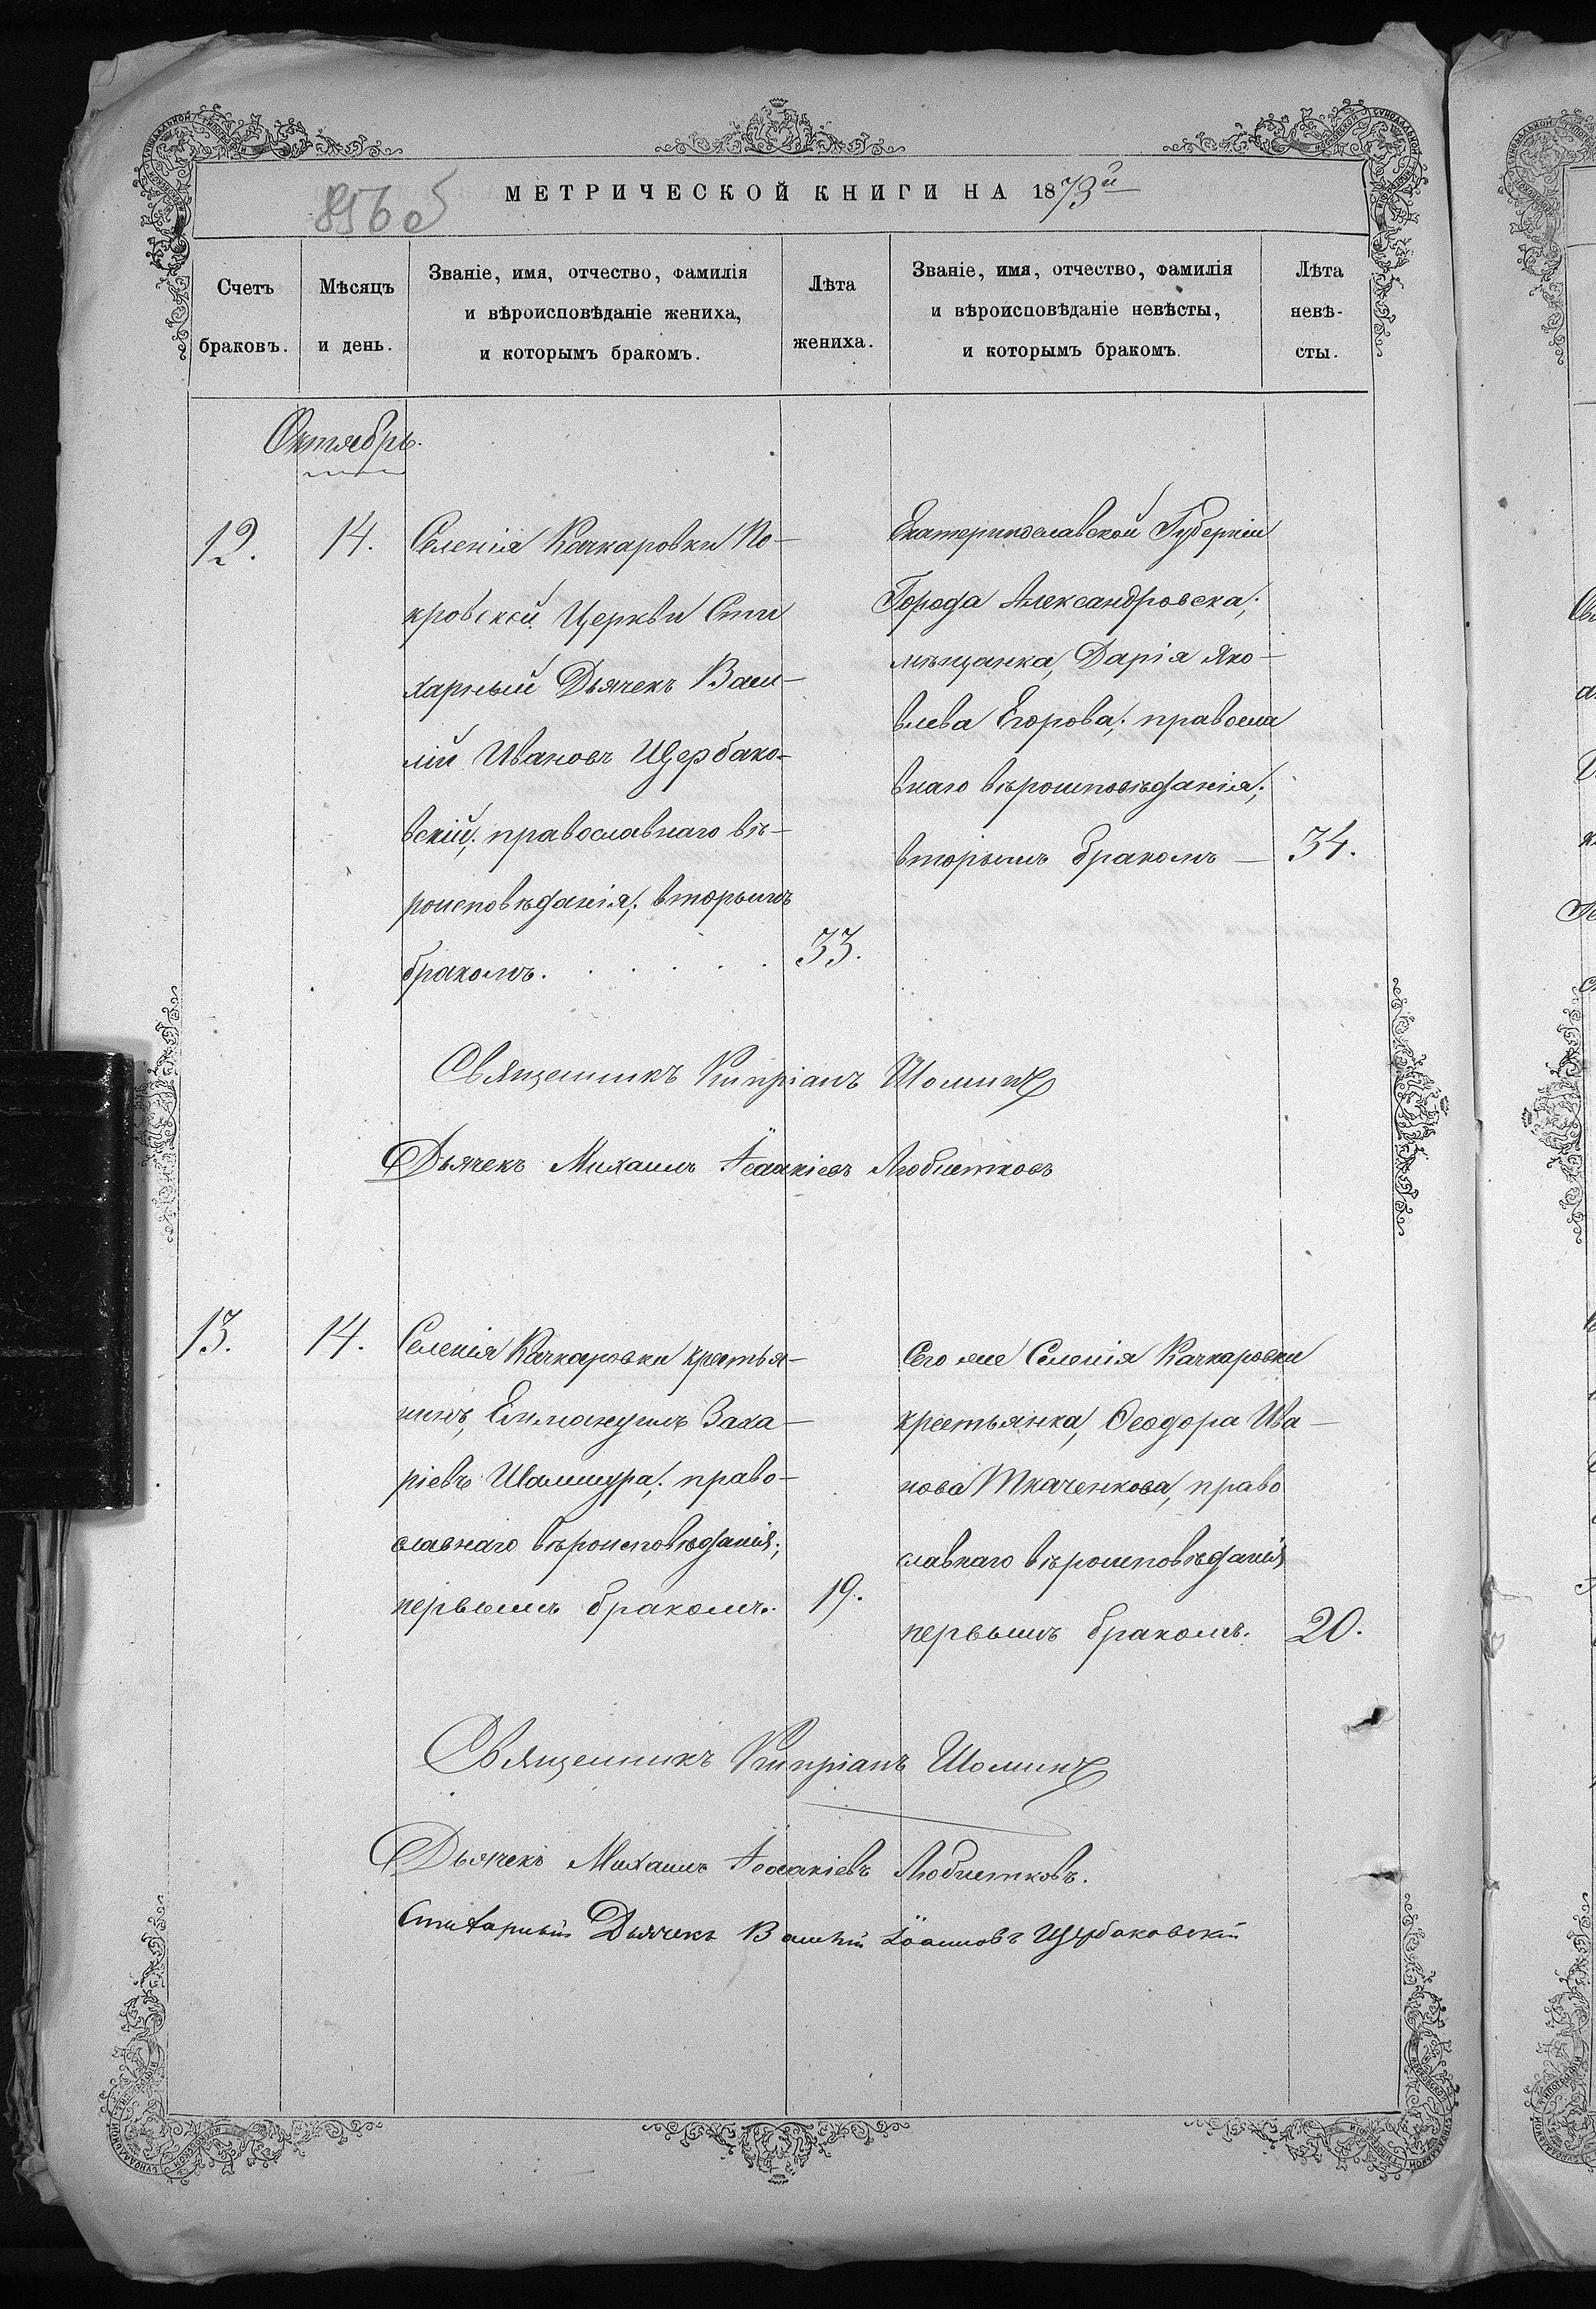 МЕТРИЧЕСКОЙ КНИГИ НА 1873й
856 об
Счетъ браковъ.
Мѣсяцъ и день.
Званіе, имя, отчество, фамилія
и вѣроисповѣданіе жениха,
и которымъ бракомъ.
Лѣта жениха.
Званіе, имя, отчество, фамилія
и вѣроисповѣданіе невѣсты,
и которымъ бракомъ.
Лѣта невѣ-
сты.
Октябрь.
12.
14.
Селенія Качкаровки По-
кровской Церкви Сти
харный Дьячекъ Васи-
лій Ивановъ Щербако-
вскій; православнаго вѣ-
роисповѣданія; вторымъ
бракомъ. . . . . .
33.
Екатеринославской Губерніи
Города Александровска;
мѣщанка, Дарія Яко-
влева Егорова; правосла
внаго вѣроисповѣданія;
вторымъ бракомъ —
34.
Священникъ Кипріанъ
Дьячекъ Михаилъ Ісаакіевъ Любистковъ
13.
14.
Селенія Качкаровки крестья-
нинъ, Еммануилъ Заха-
ріевъ Шамшура; право-
славнаго вѣроисповѣданія;
первымъ бракомъ.
19.
Сего же Селенія Качкаровки
крестьянка, Ѳеодора Ива-
нова Ткаченкова, право
славнаго вѣроисповѣданія
первымъ бракомъ.
20.
Священникъ Кипріанъ
Дьячекъ Михаилъ Ісаакіевъ Любистковъ.
Стихарный Дьячекъ Василій Іоанновъ Щербаковскій